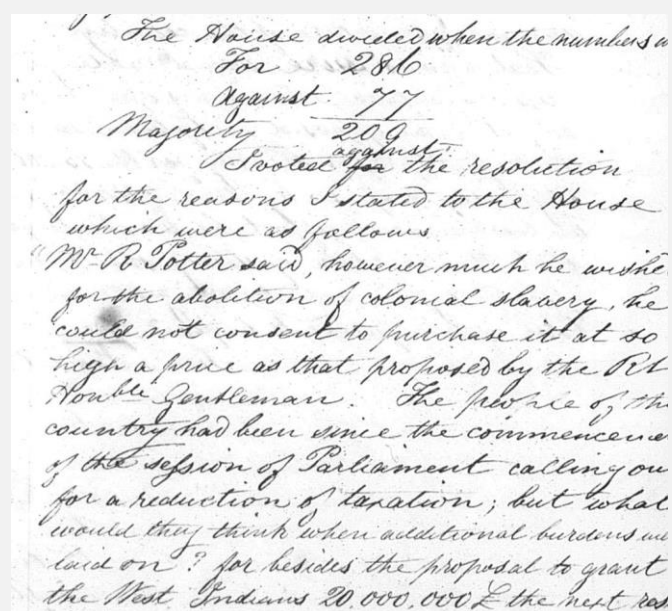 The House divided when the numbers w
For 286
Against 77
Majority 209
against
I voted for the resolution
for the reasons I stated to the House
which were as follows
"Mr R Potter said, however much he wishe
for the abolition of colonial slavery, he
could not consent to purchase it at so
high a price as that proposed by the Rt
Honble Gentleman. The people of the
country had been since the commencem
of the session of Parliament calling ou
for a reduction of taxation; but what
would they think when additional burdens we
laid on? for besides the proposal to grant
the West Indians 20.000.000£ the next